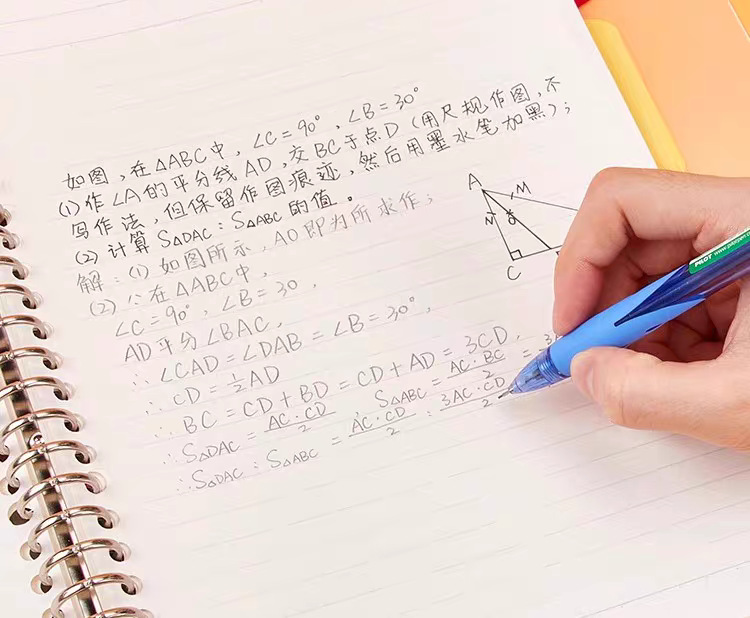 如图,在△ABC中,∠C=90°,∠B=30°
(1)作∠A的平分线AD,交BC于点D(用尺规作图,不
写作法,但保留作图痕迹,然后用墨水笔加黑);
(2)计算S△DAC:S△ABC的值。
解:(1)如图所示,AD即为所求作;
(2)∵在△ABC中,
∠C=90°,∠B=30,
AD平分∠BAC,
∴∠CAD=∠DAB=∠B=30°,
∴CD=1/2AD
∴BC=CD+BD=CD+AD=3CD,
∴S△DAC=AC·CD/2,S△ABC=AC·BC/2=3
∴S△DAC:S△ABC=AC·CD/2:3AC·CD/2
A
M
N
C
PILOT